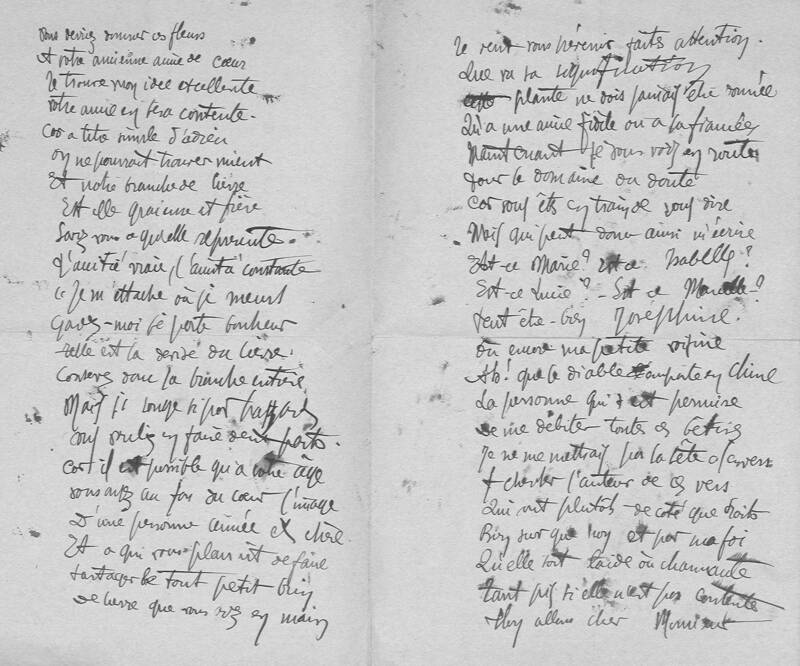 vous devriez donner ces fleurs
A votre ancienne amie de cœur
Je trouve mon idée excellente
votre amie en sera contente.
Car a titre simple d'adieu
on ne pourrait trouver mieux
Et notre branche de lierre
Est elle gracieuse et fière
Savez vous ce qu'elle représente.
L'amitié vraie, l'amitié constante
"Je m'attache où je meurs
Gardez-moi je porte bonheur
telle est la devise du lierre.
Conservez donc la branche entière
Mais je songe si par hasard
vous vouliez en faire deux parts.
car il est possible qu'a votre âge
vous ayez au fond du cœur l'image
D'une personne aimée et chère
Et a qui vous plairait de faire
partager ce tout petit brin
de lierre que vous avez en main
Je veux vous prévenir faites attention.
Que vu sa signification
cette plante ne dois jamais être donnée
Qu'a une amie fidèle ou a sa fiancée
Maintenant je vous vois en route
pour le domaine du doute
car vous êtes en train de vous dire
Mais qui peut donc ainsi m'écrire
Est-ce Marie? Est-ce Isabelle?
Est-ce Lucie? - Est ce Marcelle?
Peut être bien Joséphine.
ou encore ma petite voisine
Ah! que le diable emporte en Chine
La personne qui s'est permise
de me débiter toutes ces bêtises
Je ne me mettrais pas la tête a l'envers
A chercher l'auteur de ces vers
Qui ont plutôt de coté que droits
Bien sur que non et par ma foi
Qu'elle soit laide ou charmante
tant pis si elle n'est pas contente
allons cher Monsieur